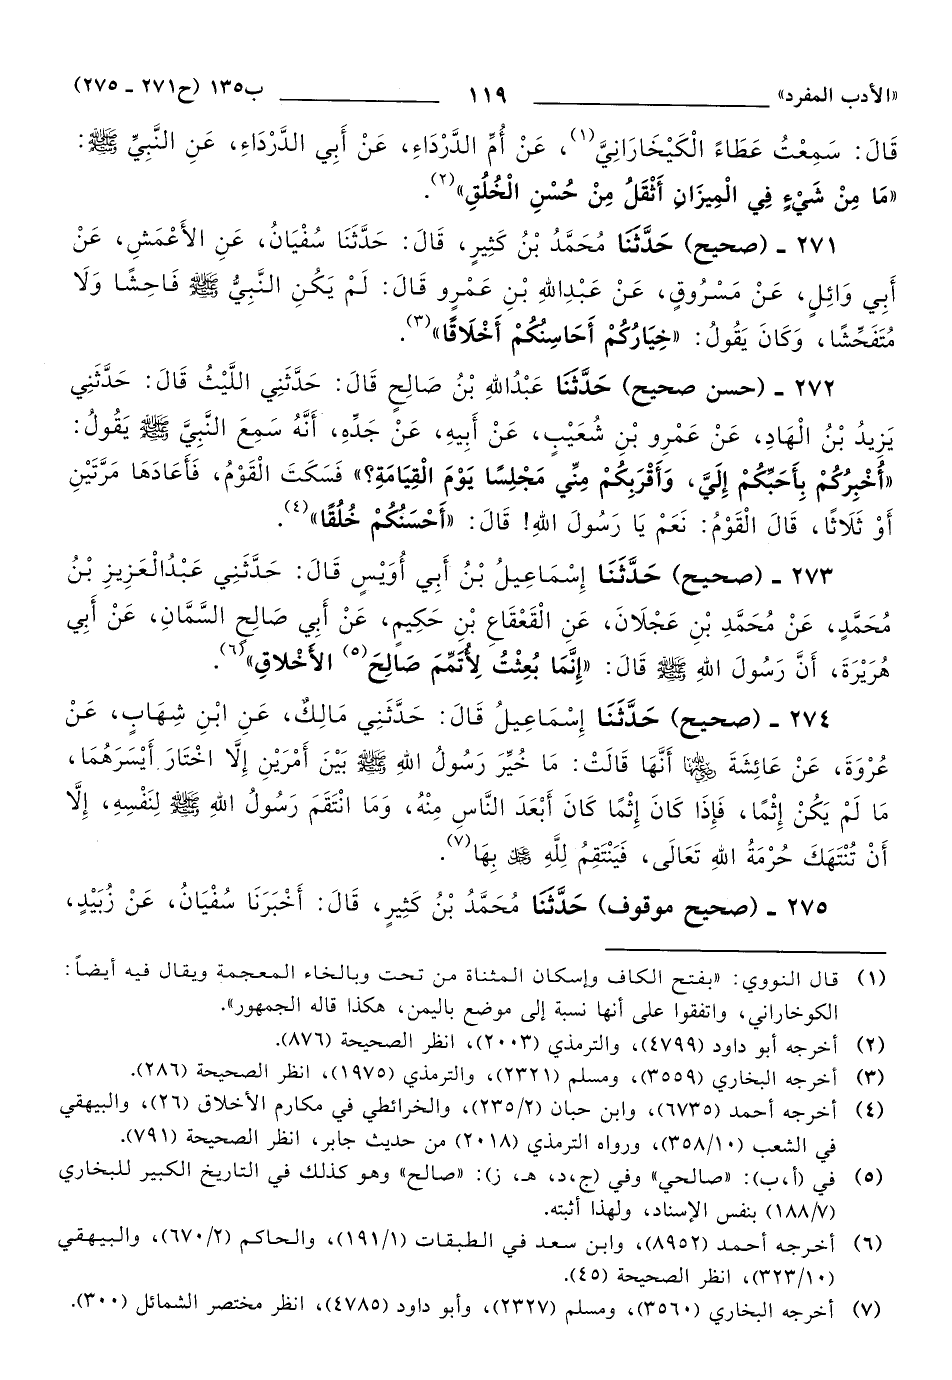 «الأدب المفرد» ــــــــــــ ١١٩ ــــــــــــ ب١٣٥ (ح٢٧١ ـ ٢٧٥)
قَالَ: سَمِعْتُ عَطَاءً الْكَيْخَارَانِيَّ(١)، عَنْ أُمِّ الدَّرْدَاءِ، عَنْ أَبِي الدَّرْدَاءِ، عَنِ النَّبِيِّ ﷺ:
«مَا مِنْ شَيْءٍ فِي الْمِيزَانِ أَثْقَلُ مِنْ حُسْنِ الْخُلُقِ»(٢).
٢٧١ ـ (صحيح) حَدَّثَنَا مُحَمَّدُ بْنُ كَثِيرٍ، قَالَ: حَدَّثَنَا سُفْيَانُ، عَنِ الأَعْمَشِ، عَنْ
أَبِي وَائِلٍ، عَنْ مَسْرُوقٍ، عَنْ عَبْدِاللهِ بْنِ عَمْرٍو قَالَ: لَمْ يَكُنِ النَّبِيُّ ﷺ فَاحِشًا وَلَا
مُتَفَحِّشًا، وَكَانَ يَقُولُ: «خِيَارُكُمْ أَحَاسِنُكُمْ أَخْلَاقًا»(٣).
٢٧٢ ـ (حسن صحيح) حَدَّثَنَا عَبْدُاللهِ بْنُ صَالِحٍ قَالَ: حَدَّثَنِي اللَّيْثُ قَالَ: حَدَّثَنِي
يَزِيدُ بْنُ الْهَادِ، عَنْ عَمْرِو بْنِ شُعَيْبٍ، عَنْ أَبِيهِ، عَنْ جَدِّهِ، أَنَّهُ سَمِعَ النَّبِيَّ ﷺ يَقُولُ:
«أُخْبِرُكُمْ بِأَحَبِّكُمْ إِلَيَّ، وَأَقْرَبِكُمْ مِنِّي مَجْلِسًا يَوْمَ الْقِيَامَةِ؟» فَسَكَتَ الْقَوْمُ، فَأَعَادَهَا مَرَّتَيْنِ
أَوْ ثَلَاثًا، قَالَ الْقَوْمُ: نَعَمْ يَا رَسُولَ اللهِ! قَالَ: «أَحْسَنُكُمْ خُلُقًا»(٤).
٢٧٣ ـ (صحيح) حَدَّثَنَا إِسْمَاعِيلُ بْنُ أَبِي أُوَيْسٍ قَالَ: حَدَّثَنِي عَبْدُالْعَزِيزِ بْنُ
مُحَمَّدٍ، عَنْ مُحَمَّدِ بْنِ عَجْلَانَ، عَنِ الْقَعْقَاعِ بْنِ حَكِيمٍ، عَنْ أَبِي صَالِحٍ السَّمَّانِ، عَنْ أَبِي
هُرَيْرَةَ، أَنَّ رَسُولَ اللهِ ﷺ قَالَ: «إِنَّمَا بُعِثْتُ لِأُتَمِّمَ صَالِحَ(٥) الأَخْلاقِ»(٦).
٢٧٤ ـ (صحيح) حَدَّثَنَا إِسْمَاعِيلُ قَالَ: حَدَّثَنِي مَالِكٌ، عَنِ ابْنِ شِهَابٍ، عَنْ
عُرْوَةَ، عَنْ عَائِشَةَ رضي الله عنها أَنَّهَا قَالَتْ: مَا خُيِّرَ رَسُولُ اللهِ ﷺ بَيْنَ أَمْرَيْنِ إِلَّا اخْتَارَ أَيْسَرَهُمَا،
مَا لَمْ يَكُنْ إِثْمًا، فَإِذَا كَانَ إِثْمًا كَانَ أَبْعَدَ النَّاسِ مِنْهُ، وَمَا انْتَقَمَ رَسُولُ اللهِ ﷺ لِنَفْسِهِ، إِلَّا
أَنْ تُنْتَهَكَ حُرْمَةُ اللهِ تَعَالَى، فَيَنْتَقِمُ لِلَّهِ عز وجل بِهَا(٧).
٢٧٥ ـ (صحيح موقوف) حَدَّثَنَا مُحَمَّدُ بْنُ كَثِيرٍ، قَالَ: أَخْبَرَنَا سُفْيَانُ، عَنْ زُبَيْدٍ،
(١) قال النووي: «بفتح الكاف وإسكان المثناة من تحت وبالخاء المعجمة ويقال فيه أيضاً:
الكوخاراني، واتفقوا على أنها نسبة إلى موضع باليمن، هكذا قاله الجمهور».
(٢) أخرجه أبو داود (٤٧٩٩)، والترمذي (٢٠٠٣)، انظر الصحيحة (٨٧٦).
(٣) أخرجه البخاري (٣٥٥٩)، ومسلم (٢٣٢١)، والترمذي (١٩٧٥)، انظر الصحيحة (٢٨٦).
(٤) أخرجه أحمد (٦٧٣٥)، وابن حبان (٢٣٥/٢)، والخرائطي في مكارم الأخلاق (٢٦)، والبيهقي
في الشعب (٣٥٨/١٠)، ورواه الترمذي (٢٠١٨) من حديث جابر، انظر الصحيحة (٧٩١).
(٥) في (أ،ب): «صالحي» وفي (ج،د، هـ، ز): «صالح» وهو كذلك في التاريخ الكبير للبخاري
(١٨٨/٧) بنفس الإسناد، ولهذا أثبته.
(٦) أخرجه أحمد (٨٩٥٢)، وابن سعد في الطبقات (١٩١/١)، والحاكم (٦٧٠/٢)، والبيهقي
(٣٢٣/١٠)، انظر الصحيحة (٤٥).
(٧) أخرجه البخاري (٣٥٦٠)، ومسلم (٢٣٢٧)، وأبو داود (٤٧٨٥)، انظر مختصر الشمائل (٣٠٠).